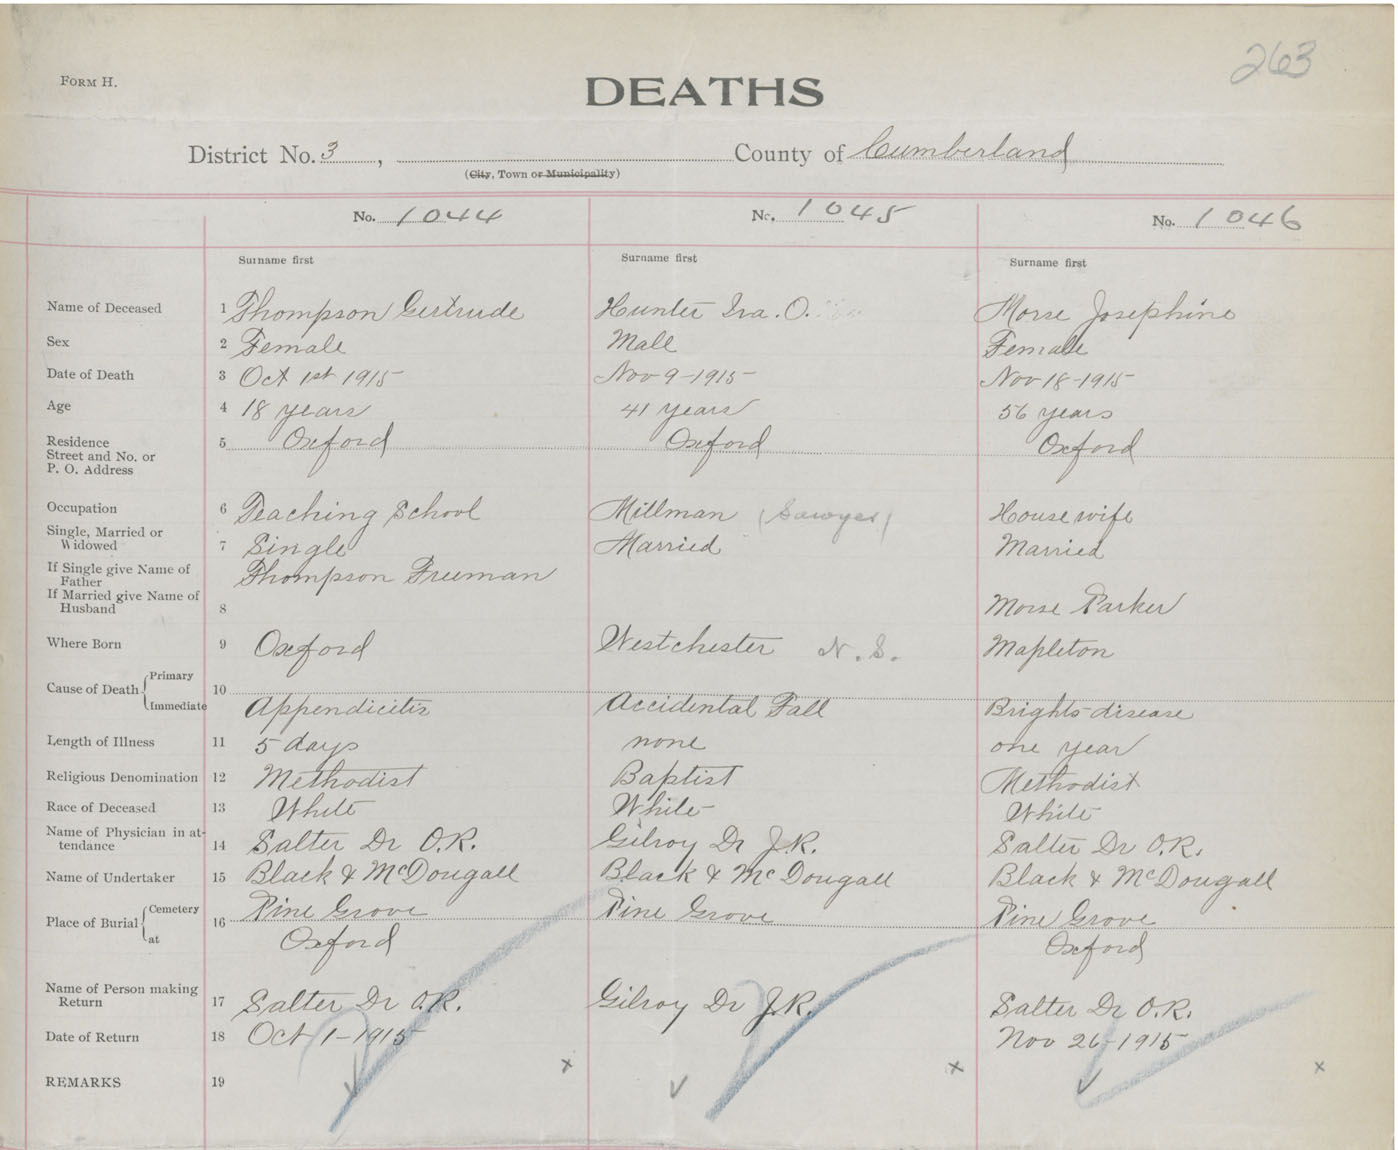 263
FORM H.
DEATHS
District No. 3, County of Cumberland
(City, Town or Municipality)
No. 1044 No. 1045 No. 1046
Surname first Surname first Surname first
Name of Deceased 1 Thompson Gertrude Hunter Ira. O. Morse Josephine
Sex 2 Female Male Female
Date of Death 3 Oct 1st 1915 Nov 9-1915 Nov 18-1915
Age 4 18 years 41 years 56 years
Residence 5 Oxford Oxford Oxford
Street and No. or
P. O. Address
Occupation 6 Teaching School Millman (Sawyer) Housewife
Single, Married or
Widowed 7 Single Married Married
If Single give Name of
Father Thompson Freeman
If Married give Name of
Husband 8 Morse Parker
Where Born 9 Oxford Westchester N. S. Mapleton
Cause of Death Primary 10
Immediate Appendicitis Accidental Fall Brights-disease
Length of Illness 11 5 days none one year
Religious Denomination 12 Methodist Baptist Methodist
Race of Deceased 13 White White White
Name of Physician in at-
tendance 14 Salter Dr O.R. Gilroy Dr J.R. Salter Dr O.R.
Name of Undertaker 15 Black & McDougall Black & McDougall Black & McDougall
Place of Burial Cemetery 16 Pine Grove Pine Grove Pine Grove
at Oxford Oxford
Name of Person making
Return 17 Salter Dr O.R. Gilroy Dr J.R. Salter Dr O.R.
Date of Return 18 Oct 1-1915 Nov 26-1915
REMARKS 19